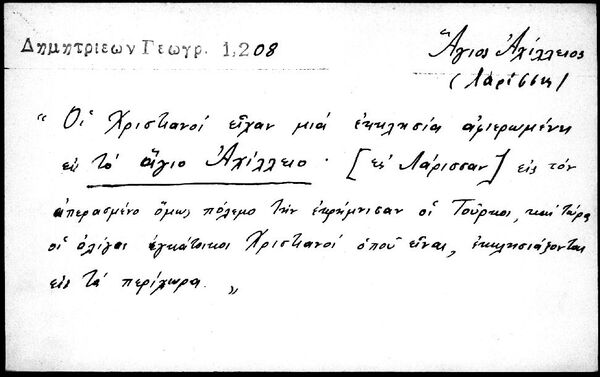 Δημητριεων Γεωγρ. 1,208
Ἅγιος Ἀχίλλειος
(Λάρισσα)
" Οἱ Χριστιανοί εἶχαν μιά ἐκκλησία ἀφιερωμένη
εἰς τὸ ἅγιο Ἀχίλλειο. [εἰς Λάρισσαν] εἰς τόν
ἀπερασμένο ὅμως πόλεμο τὴν ἐκρήμνισαν οἱ Τοῦρκοι, καί τώρα
οἱ ὀλίγοι ἐγκάτοικοι Χριστιανοί ὁποῦ εἶναι, ἐκκλησιάζονται
εἰς τὰ περίχωρα. "